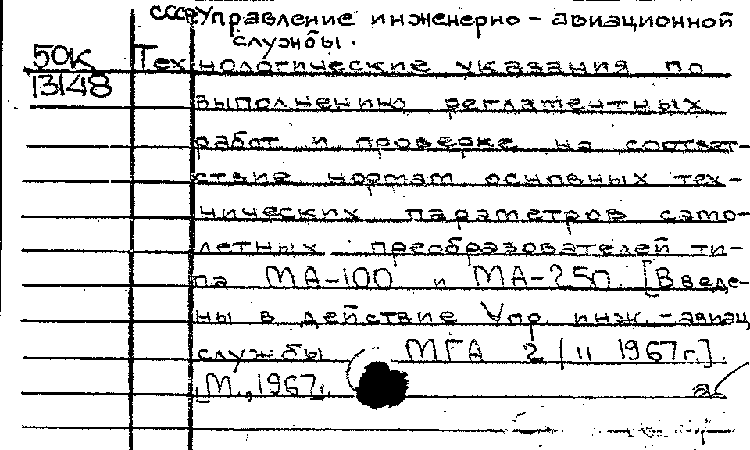 СССР Управление инженерно-авиационной
службы.
50К
13148
Технологические указания по
выполнению регламентных
работ и проверке на соответ-
ствие нормам основных тех-
нических параметров само-
летных преобразователей ти-
па МА-100 и МА-250. [Введе-
ны в действие Упр. инж.-авиац
службы МГА 2/II 1967г.].
[М., 1967].